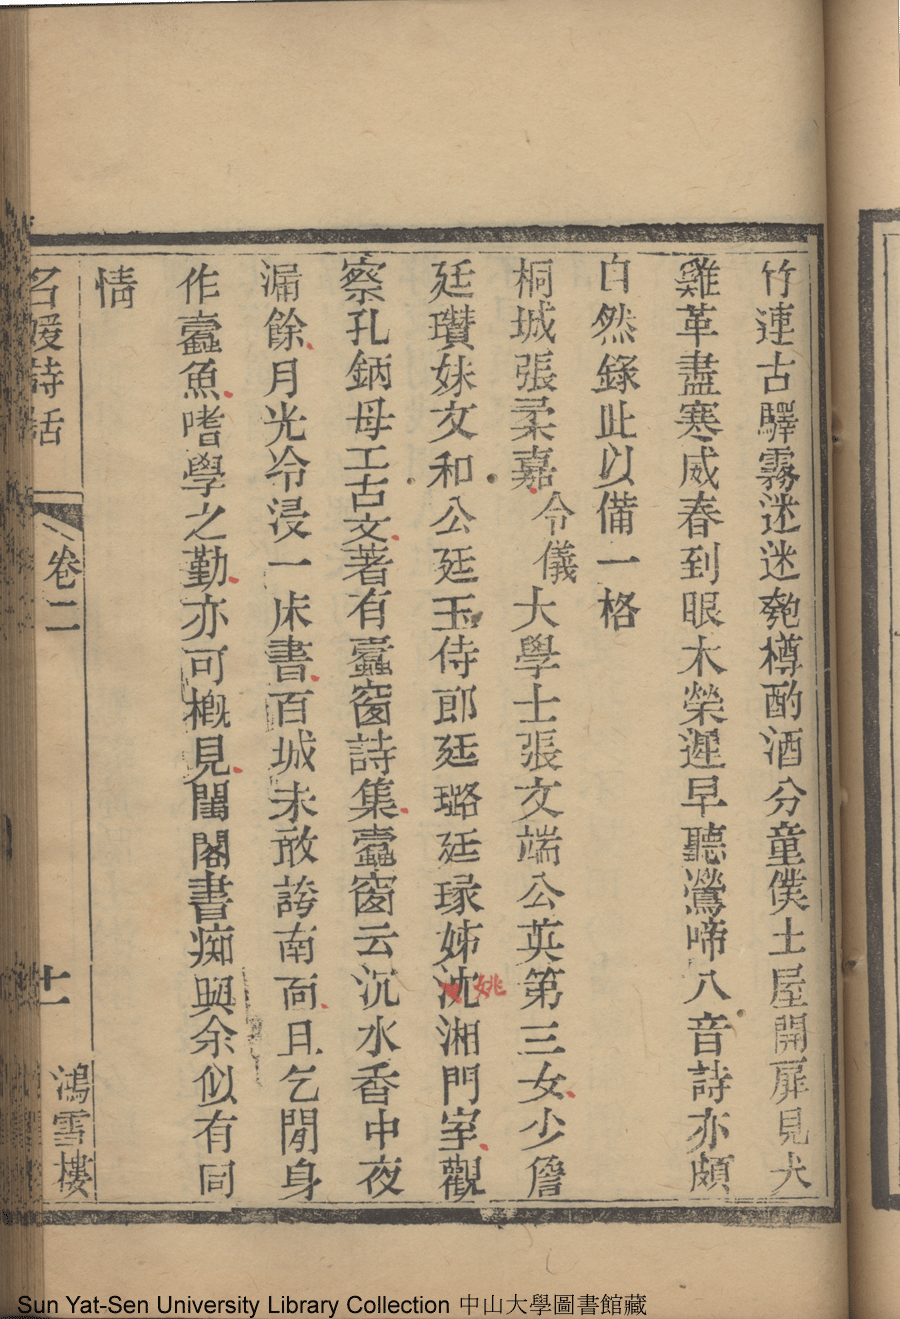 竹連古驛霧迷迷匏樽酌酒分童僕土屋開扉見犬
雞革盡寒威春到眼木榮遲早聽鶯啼八音詩亦頗
自然錄此以備一格
桐城張柔嘉令儀大學士張文端公英第三女少詹
廷瓚妹文和公廷玉侍郎廷璐廷瑑姊沈湘門室觀
姚
察孔鈵母工古文著有蠹窗詩集蠹窗云沉水香中夜
漏餘月光冷浸一床書百城未敢誇南面且乞閒身
作蠹魚嗜學之勤亦可概見閨閣書痴與余似有同
情
名媛詩話
卷二
十一
鴻雪樓
Sun Yat-Sen University Library Collection 中山大學圖書館藏